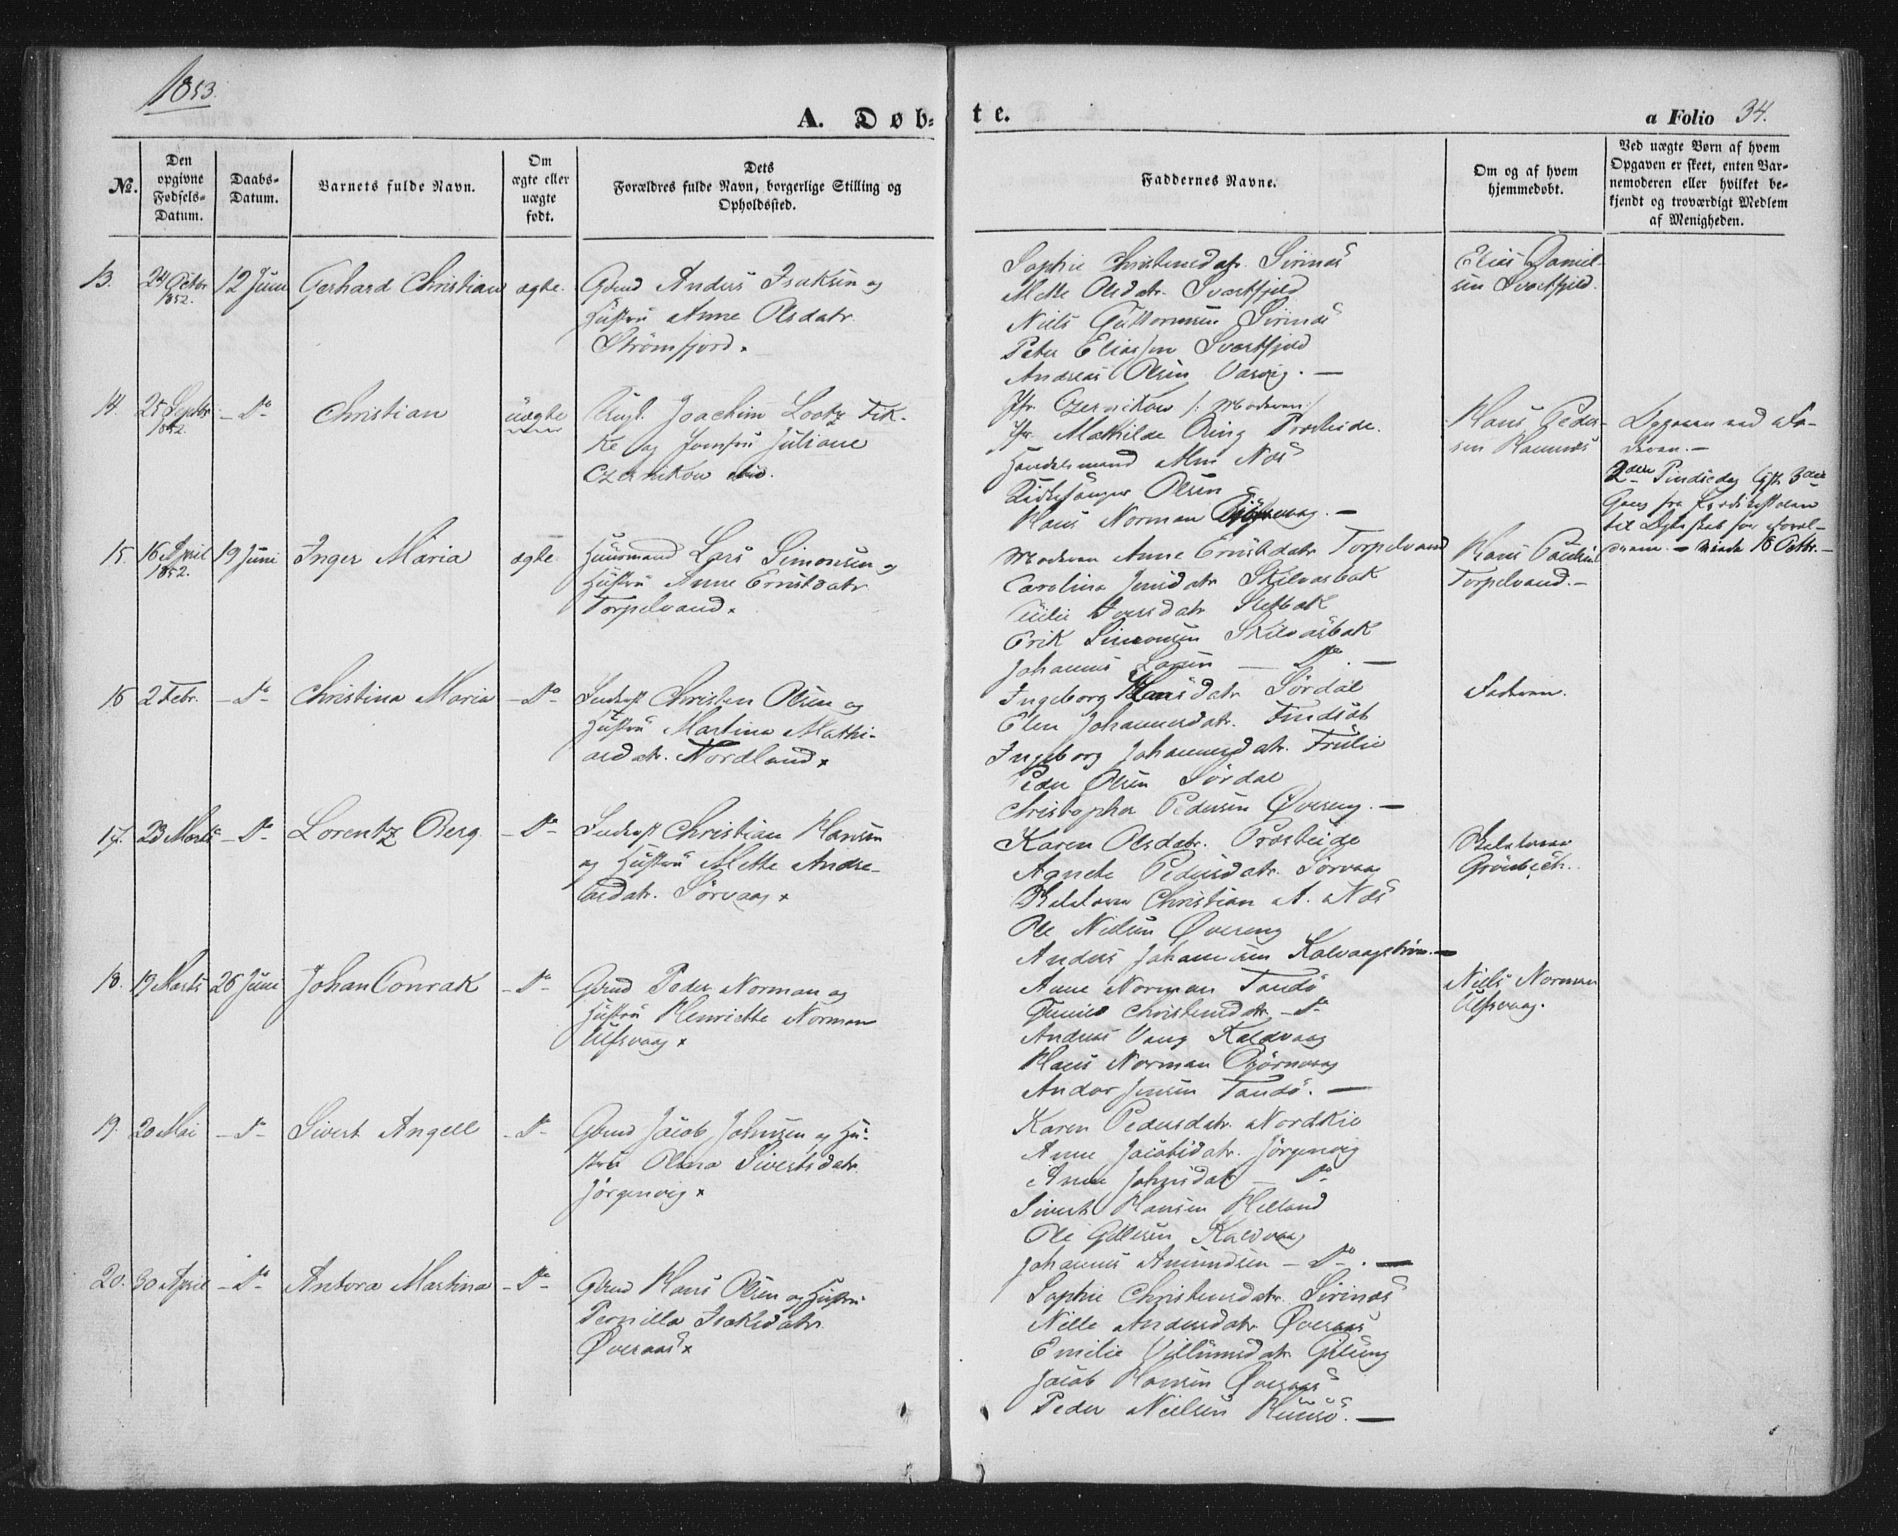 1853.
A. Døb-
te.
a Folio 34.
No.
Den opgivne Fødsels-Datum.
Daabs-Datum.
Barnets fulde Navn.
Om ægte eller uægte født.
Dets Forældres fulde Navn, borgerlige Stilling og Opholdssted.
Faddernes Navne.
Om og af hvem hjemmedøbt.
Ved uægte Børn af hvem Opgaven er skeet, enten Barnemoderen eller hvilket bekjendt og troværdigt Medlem af Menigheden.
13. 24 Octbr 1852. 12 Juni Gerhard Christian ægte. Gbmd Anders Isaksen og
Hustru Anne Olsdatr
Strömfjord.
Sophie Christensdatr. Sirinæs
Mette Olsdatr Svartfjeld
Niels Guttormsen Sirinæs
Peter Eliassen Svartfjeld
Andreas Olsen Varvig. —
Elias Daniel-
sen Svartfjeld.
14. 25 Septbr 1852. – Do Christian uægte Ungk. Joachim Lootz Fik-
ke og Jomfru Juliane
Czernikow ibid.
Jfr. Czernikow /: Moderen :/
Jfr. Mathilde Ring Presteide.
Handelsmand Næs
Kirkesanger Olsen
Hans Norman Bjørnvaag. —
Hans Peder-
sen Hamnæs
Opgaven ved Fa-
deren. —
2den Pindsedag
15. 16 April 1852. 19 Juni Inger Maria ægte. Huusmand Lars Simonsen og
Hustru Anne Ernstdatr
Torpelvand
Moderen Anne Ernstdatr Torpelvand
Carolina Jensdatr Skilvasbak
Iversdatr Sletbak
Erik Simonsen Skilvasbak
Johannes Larsen — Do. —
Hans Paulsen
Torpelvand. —
16 2 Febr. – Do Christina Maria – Do Inderst Christen Olsen og
Hustru Martina Mathi-
asdatr. Nordland
Ingeborg Hansdatr Sördal
Elen Johannesdatr. Findsæt
Ingeborg Johannesdatr.
Peder Olsen Sördal
Christopher Pedersen Øvereng. —
Faderen.
17. 23 Marts – Do Lorentz Berg – Do Inderst Christian Hansen
og Hustru Mette Andre-
asdatr. Sörvaag
Karen Olsdatr. Prösteide
Agnete Pedersdatr Sörvaag
Christian A. Næs
Ole Nielsen Øvereng
Anders Johannesen Kalvaagström —
Grönbech.
18. 19 Marts 26 Juni Johan Conrak – Do Gbmd Peder Norman og
Hustru Henriette Norman
Ulfsvaag
Anne Norman Tandö
Christensdatr – Do
Andreas Vang Kaldvaag
Hans Norman Bjørnvaag
Andor Jensen Tandö. —
Niels Norman
Ulfsvaag.
19. 20 Mai – Do Sivert Angell – Do Gbmd Jacob Johnsen og Hu-
stru Olina Sivertsdatr.
Jörgenvig
Karen Pedersdatr. Nordkie
Anne Jacobsdatr. Jörgenvig
Anne Johnsdatr — Do
Sivert Hansen Helland
Ole Gullesen Kaldvaag
Johannes Amundsen – Do. —
20. 30 April – Do Antora Martina – Do Gbmd Hans Olsen og Hustru
Pernilla Isaksdatr.
Øveraas
Sophie Christensdatr Sirinæs
Nille Andersdatr Øveraas
Emilie Villumsdatr
Jacob Hansen Øveraas
Peder Nielsen. —